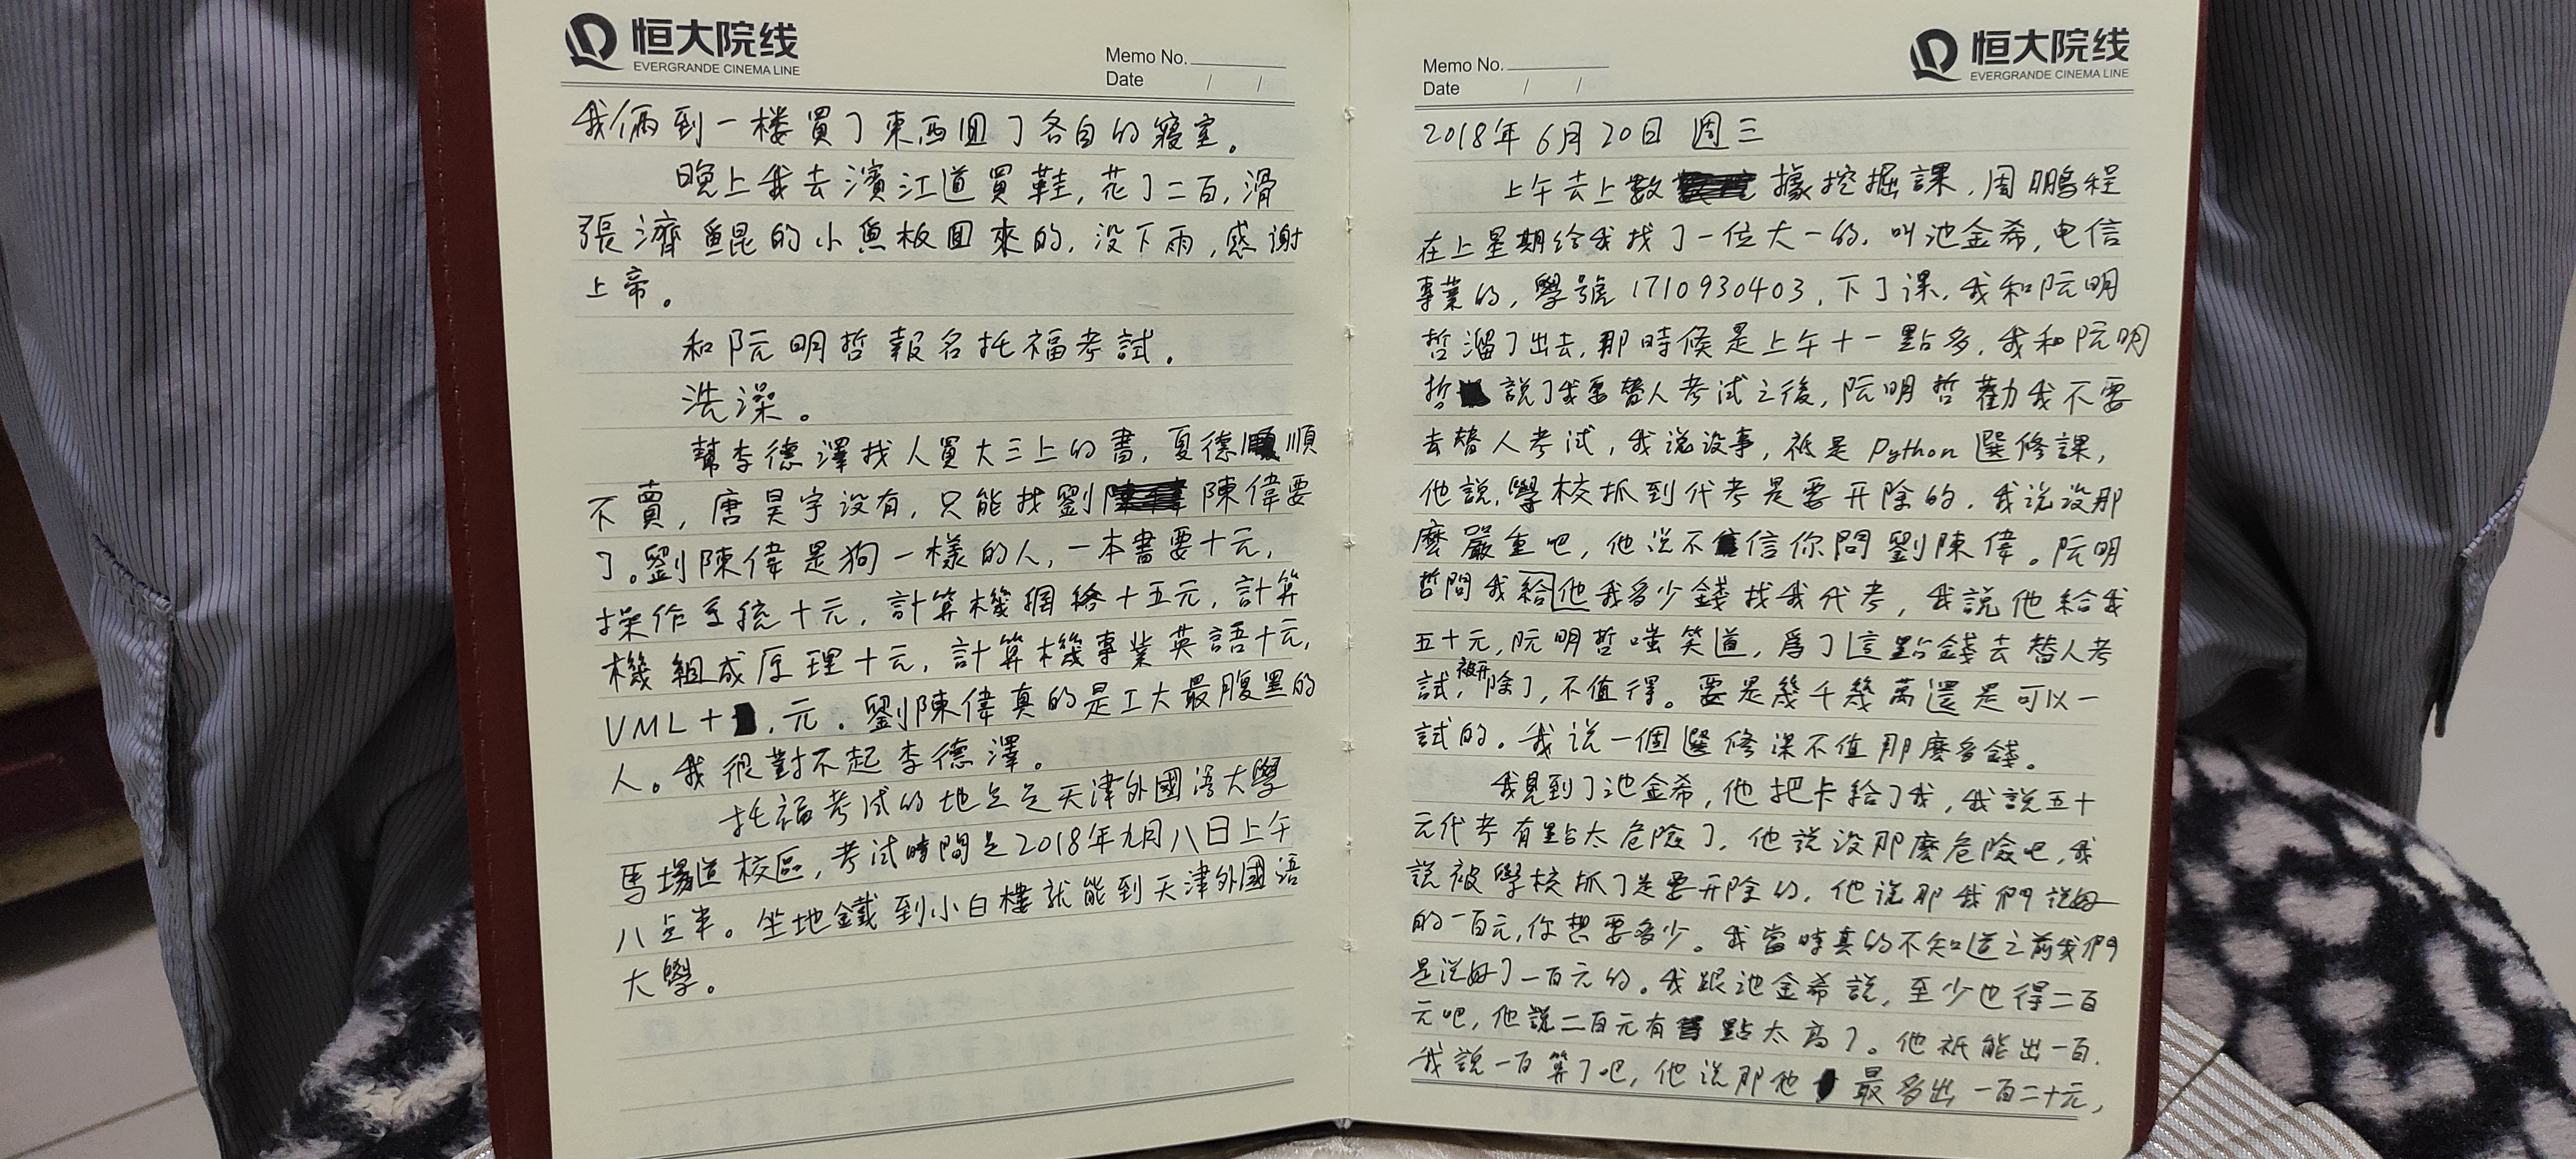 恒大院线
EVERGRANDE CINEMA LINE
Memo No.
Date / /
我倆到一楼買了東西回了各自的寢室。
晚上我去濱江道買鞋,花了二百,滑
張濟鲲的小魚板回來的,没下雨,感谢
上帝。
和阮明哲報名托福考試.
洗澡。
幫李德澤找人買大三上的書,夏德順
不賣,唐昊宇没有,只能找劉陳偉要
了。劉陳偉是狗一樣的人,一本書要十元,
操作系統十元,計算機網絡十五元,計算
機組成原理十元,計算機專業英語十元,
VML十元.劉陳偉真的是工大最腹黑的
人。我很對不起李德澤。
托福考试的地点是天津外國语大學
馬場道校區,考试時間是2018年九月八日上午
八点半。坐地鐵到小白樓就能到天津外國语
大學。
Memo No.
Date / /
恒大院线
EVERGRANDE CINEMA LINE
2018年6月20日 週三
上午去上數據挖掘課,周鵬程
在上星期给我找了一位大一的,叫池金希,电信
專業的,學號1710930403,下了课,我和阮明
哲溜了出去,那時候是上午十一點多,我和阮明
哲說了我要替人考试之後,阮明哲勸我不要
去替人考试,我说没事,祗是Python選修課,
他説,學校抓到代考是要开除的,我说没那
麼嚴重吧,他说不信你問劉陳偉。阮明
哲問我給他我多少錢找我代考,我說他給我
五十元,阮明哲嗤笑道,爲了這點錢去替人考
試,被开除了,不值得。要是幾千幾萬還是可以一
試的。我说一個選修课不值那麼多錢。
我見到了池金希,他把卡給了我,我說五十
元代考有點太危險了,他說没那麼危險吧,我
說被學校抓了是要开除的,他说那我們说好
的一百元,你想要多少。我當時真的不知道之前我們
是说好了一百元的。我跟池金希說,至少也得二百
元吧,他說二百元有點太高了。他祗能出一百.
我說一百算了吧,他说那他最多出一百二十元,